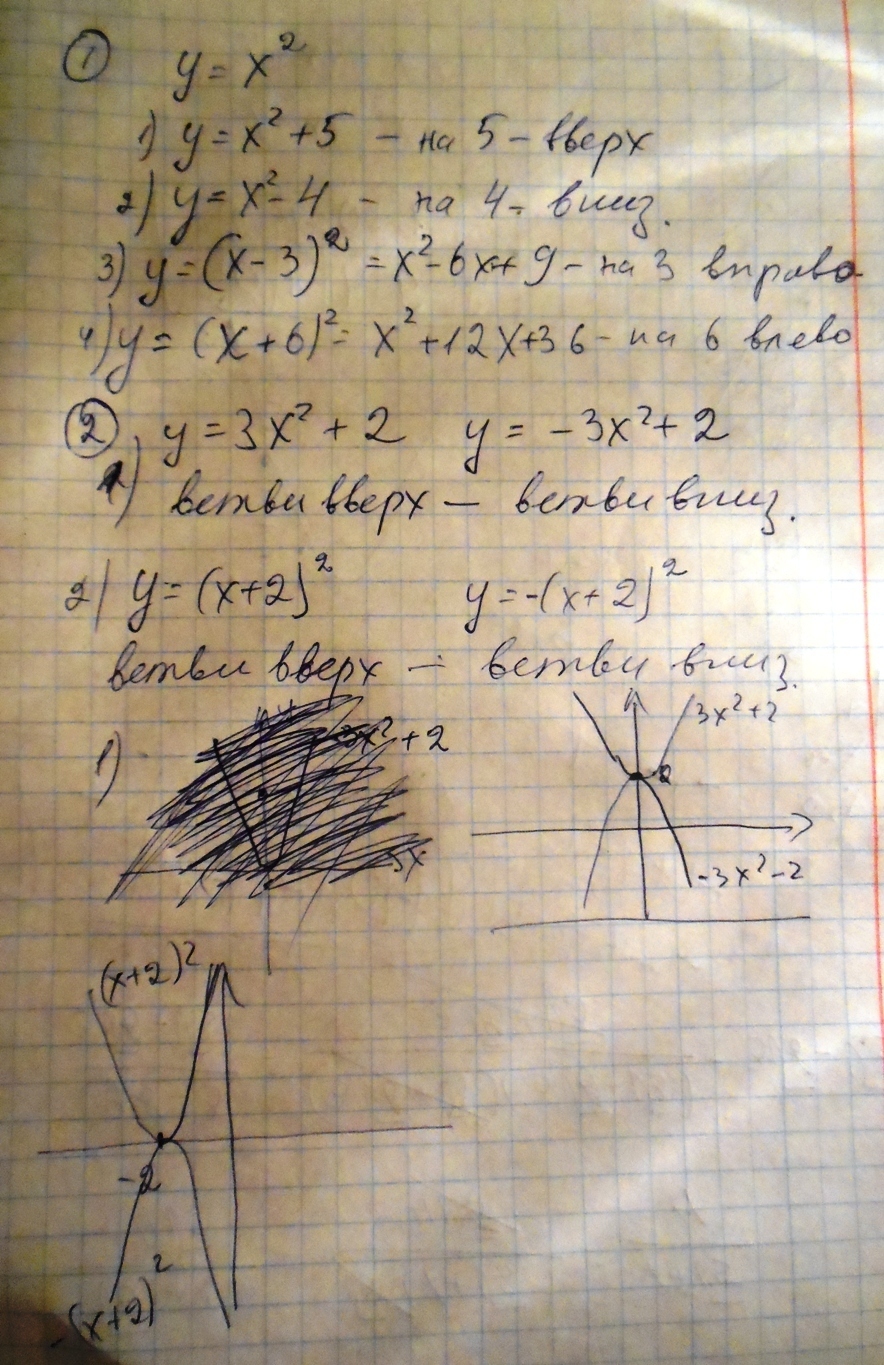 ① y = x²
1) y = x² + 5 - на 5 - вверх
2) y = x² - 4 - на 4 - вниз.
3) y = (x - 3)² = x² - 6x + 9 - на 3 вправо
4) y = (x + 6)² = x² + 12x + 36 - на 6 влево
② y = 3x² + 2 y = -3x² + 2
1) ветви вверх — ветви вниз.
2) y = (x+2)² y = -(x+2)²
ветви вверх — ветви вниз.
1) 3x² + 2
3x²+2
2
-3x²-2
(x+2)²
-2
-(x+2)²